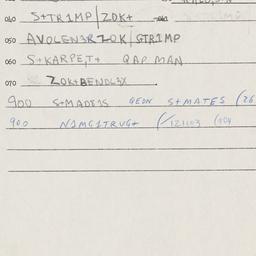 040 S+TR1MP/ZOK+
050 AVOLEN3RZOK/GTR1MP
060 S+KARPE,T+ QAP MAN
070 ZOK+BENDL3X
900 S+MAD1S GEON S+MATES (26
900 N1MC1TRVG+ (/121103 (404